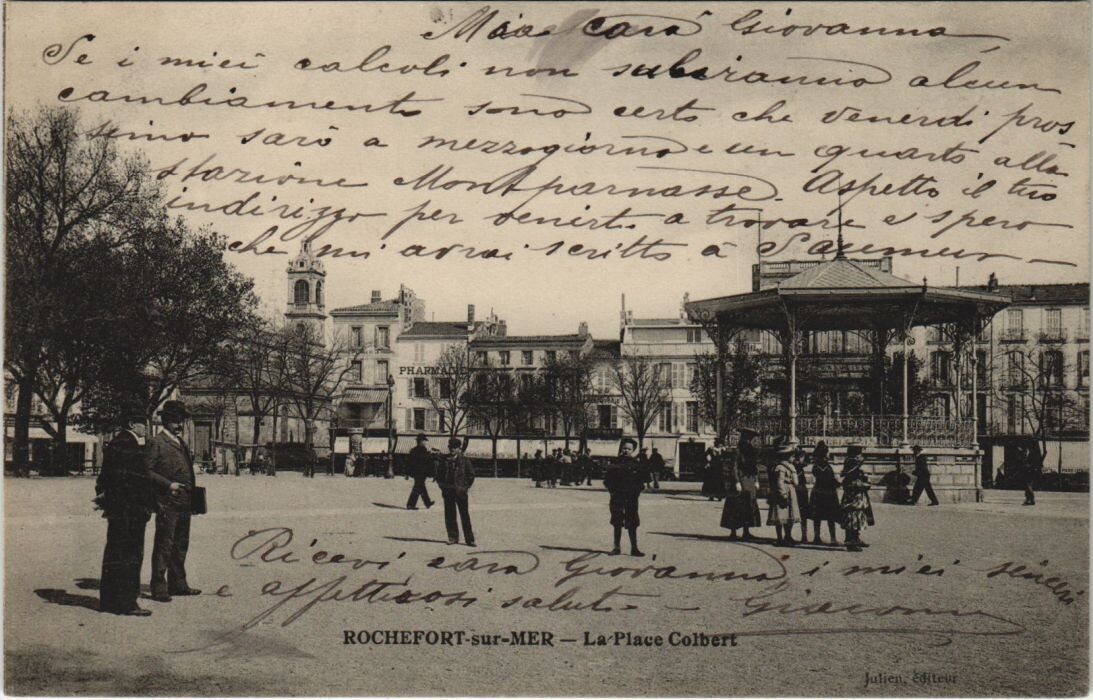 Mia cara Giovanna,
Se i miei calcoli non subiranno alcun
cambiamento sono certo che venerdì pros
simo sarò a mezzogiorno e un quarto alla
stazione Montparnasse. Aspetto il tuo
indirizzo per venirti a trovare e spero
che mi avrai scritto à Saumur
PHARMACIE
Ricevi cara Giovanna i miei sinceri
e affettuosi saluti - Giacomo
ROCHEFORT-sur-MER — La Place Colbert
Julien, éditeur